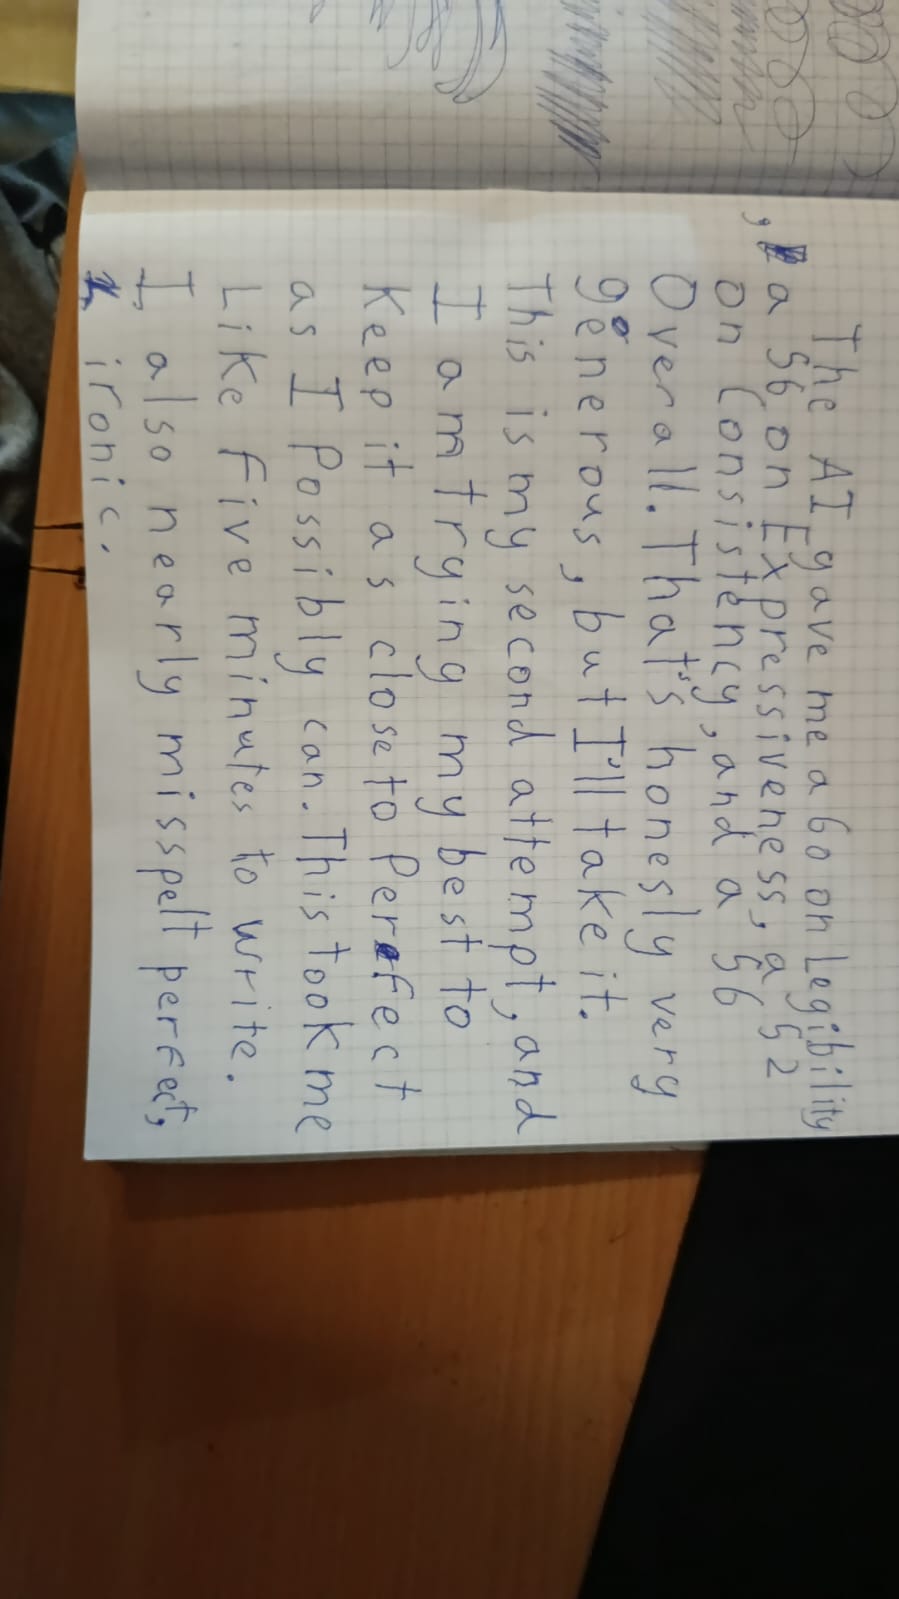 The AI gave me a 60 on Legibility
, a 56 on Expressiveness, a 52
on Consistency, and a 56
Overall. That's honesly very
generous, but I'll take it.
This is my second attempt, and
I am trying my best to
Keep it as close to Perfect
as I Possibly can. This took me
Like five minutes to write.
I also nearly misspelt perfect,
ironic.